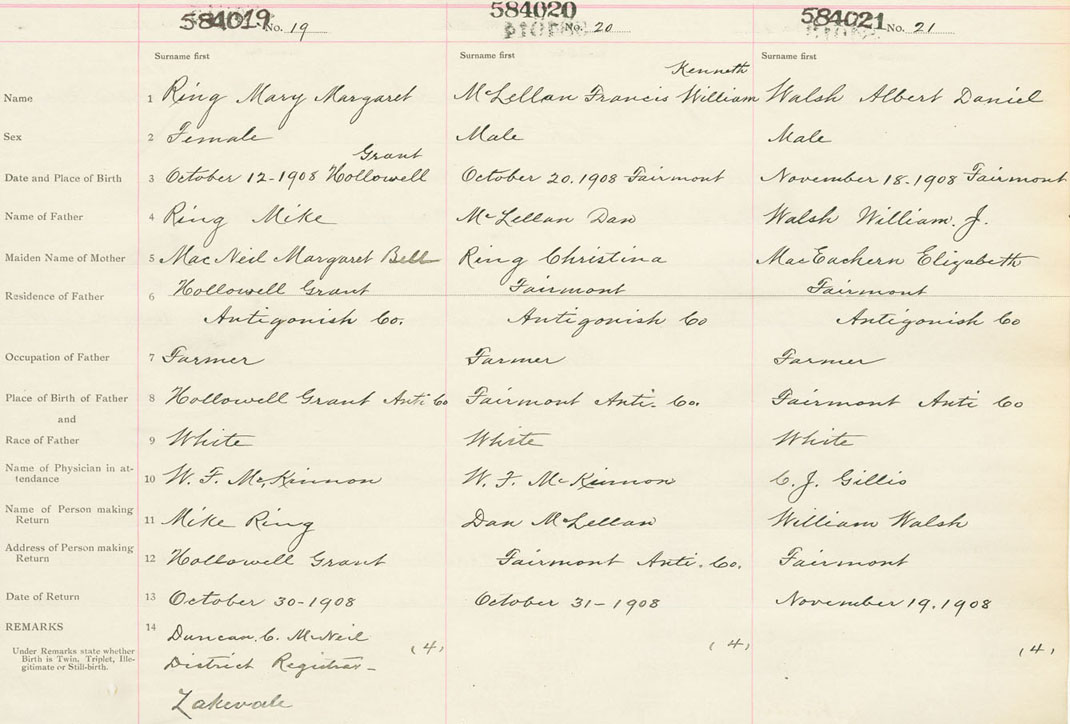 584019 No. 19 584020 No. 20 584021 No. 21
Surname first Surname first Surname first
Kenneth
Name 1 Ring Mary Margaret McLellan Francis William Walsh Albert Daniel
Sex 2 Female Male Male
Grant
Date and Place of Birth 3 October 12-1908 Hollowell October 20.1908 Fairmont November 18-1908 Fairmont
Name of Father 4 Ring Mike McLellan Dan Walsh William. J.
Maiden Name of Mother 5 MacNeil Margaret Bell Ring Christina MacEachern Elizabeth
Residence of Father 6 Hollowell Grant Fairmont Fairmont
Antigonish Co. Antigonish Co Antigonish Co
Occupation of Father 7 Farmer Farmer Farmer
Place of Birth of Father 8 Hollowell Grant Anti Co Fairmont Anti. Co. Fairmont Anti Co
and
Race of Father 9 White White White
Name of Physician in at-
tendance 10 W. F. McKinnon W. F. McKinnon C. J. Gillis
Name of Person making
Return 11 Mike Ring Dan McLellan William Walsh
Address of Person making
Return 12 Hollowell Grant Fairmont Anti. Co. Fairmont
Date of Return 13 October 30-1908 October 31-1908 November 19.1908
REMARKS 14 Duncan. C. McNeil
Under Remarks state whether
Birth is Twin, Triplet, Ille-
gitimate or Still-birth.
(4) (4) (4)
District Registrar-
Lakevale